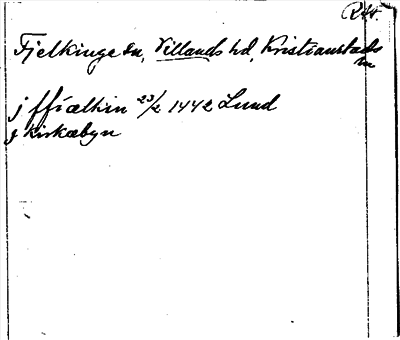 RAp.
Fjelkinge sn, Villands hd, Kristianstads
ln
j ffiælkin 23/2 1442 Lund
j kirkæbyn